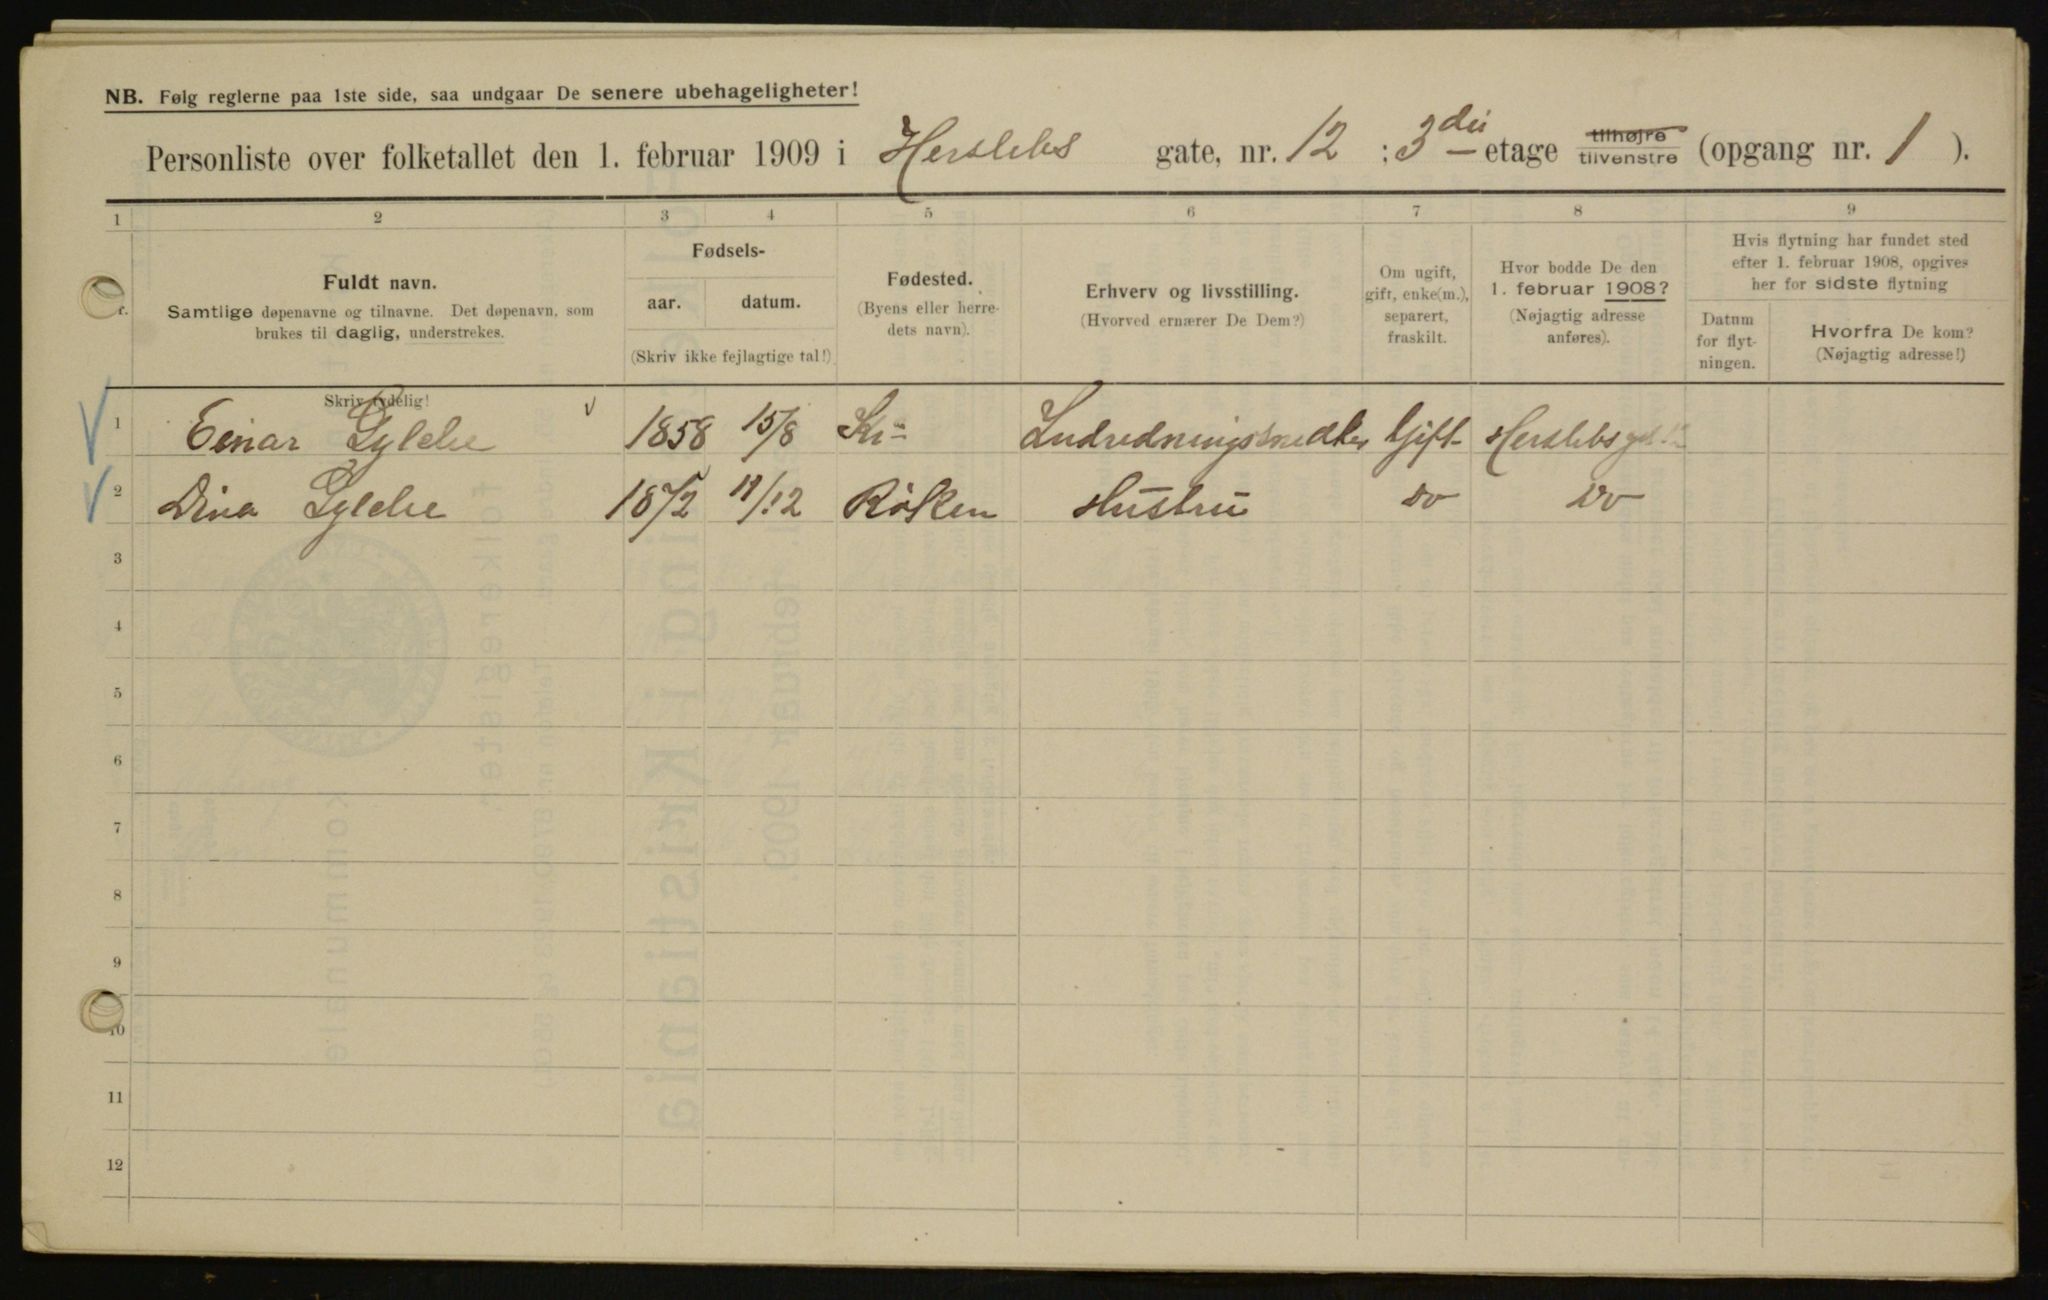 NB. Følg reglerne paa 1ste side, saa undgaar De senere ubehageligheter!
Personliste over folketallet den 1. februar 1909 i Herslebs gate, nr. 12 : 3 die etage tilhøjre tilvenstre (opgang nr. 1 ).
1 2 3 4 5 6 7 8 9
Fuldt navn.
Samtlige døpenavne og tilnavne. Det døpenavn, som
brukes til daglig, understrekes.
Fødsels-
aar. datum.
(Skriv ikke fejlagtige tal!)
Fødested.
(Byens eller herre-
dets navn).
Erhverv og livsstilling.
(Hvorved ernærer De Dem?)
Om ugift,
gift, enke(m.),
separert,
fraskilt.
Hvor bodde De den
1. februar 1908?
(Nøjagtig adresse
anføres).
Hvis flytning har fundet sted
efter 1. februar 1908, opgives
her for sidste flytning
Datum
for flyt-
ningen.
Hvorfra De kom?
(Nøjagtig adresse!)
Skriv tydelig!
1 Einar 1858 15/8 Kr Gift Herslebsgd. 12
2 Dina 1872 /12 Røken Hustru Do Do
3
4
5
6
7
8
9
10
11
12